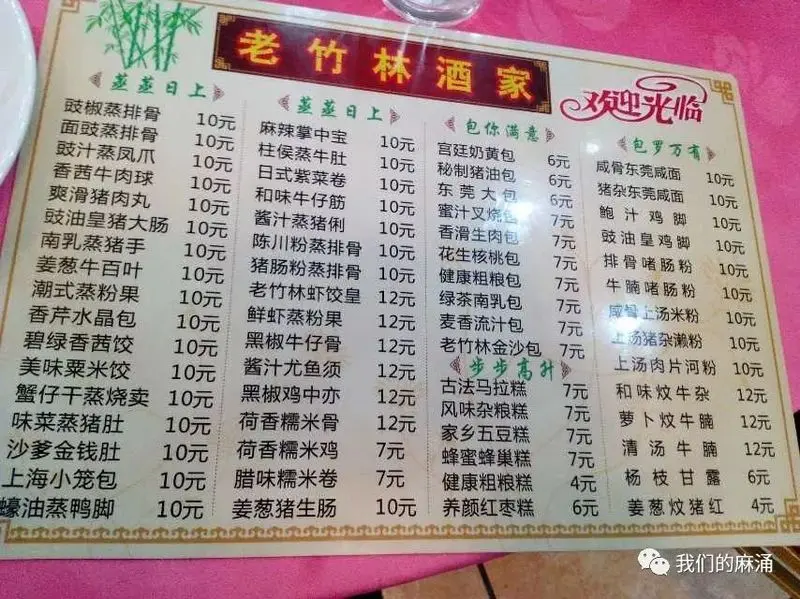 老竹林酒家
欢迎光临
蒸蒸日上
豉椒蒸排骨 10元
面豉蒸排骨 10元
豉汁蒸凤爪 10元
香茜牛肉球 10元
爽滑猪肉丸 10元
豉油皇猪大肠 10元
南乳蒸猪手 10元
姜葱牛百叶 10元
潮式蒸粉果 10元
香芹水晶包 10元
碧绿香茜饺 10元
美味粟米饺 10元
蟹仔干蒸烧卖 10元
味菜蒸猪肚 10元
沙爹金钱肚 10元
上海小笼包 10元
蠔油蒸鸭脚 10元
蒸蒸日上
麻辣掌中宝 10元
柱侯蒸牛肚 10元
日式紫菜卷 10元
和味牛仔筋 10元
酱汁蒸猪俐 10元
陈川粉蒸排骨 10元
猪肠粉蒸排骨 10元
老竹林虾饺皇 12元
鲜虾蒸粉果 12元
黑椒牛仔骨 12元
酱汁尤鱼须 12元
黑椒鸡中亦 12元
荷香糯米骨 12元
荷香糯米鸡 7元
腊味糯米卷 7元
姜葱猪生肠 10元
包你满意
宫廷奶黄包 6元
秘制猪油包 6元
东莞大包 6元
蜜汁叉烧包 6元
香滑生肉包 7元
花生核桃包 7元
健康粗粮包 7元
绿茶南乳包 7元
麦香流汁包 7元
老竹林金沙包 7元
步步高升
古法马拉糕 7元
风味杂粮糕 7元
家乡五豆糕 7元
蜂蜜蜂巢糕 7元
健康粗粮糕 4元
养颜红枣糕 6元
包罗万有
咸骨东莞咸面 10元
猪杂东莞咸面 10元
鲍汁鸡脚 10元
豉油皇鸡脚 10元
排骨啫肠粉 10元
牛腩啫肠粉 10元
咸骨上汤米粉 10元
上汤猪杂濑粉 10元
上汤肉片河粉 10元
和味炆牛杂 12元
萝卜炆牛腩 12元
清汤牛腩 12元
杨枝甘露 6元
姜葱炆猪红 4元
我们的麻涌